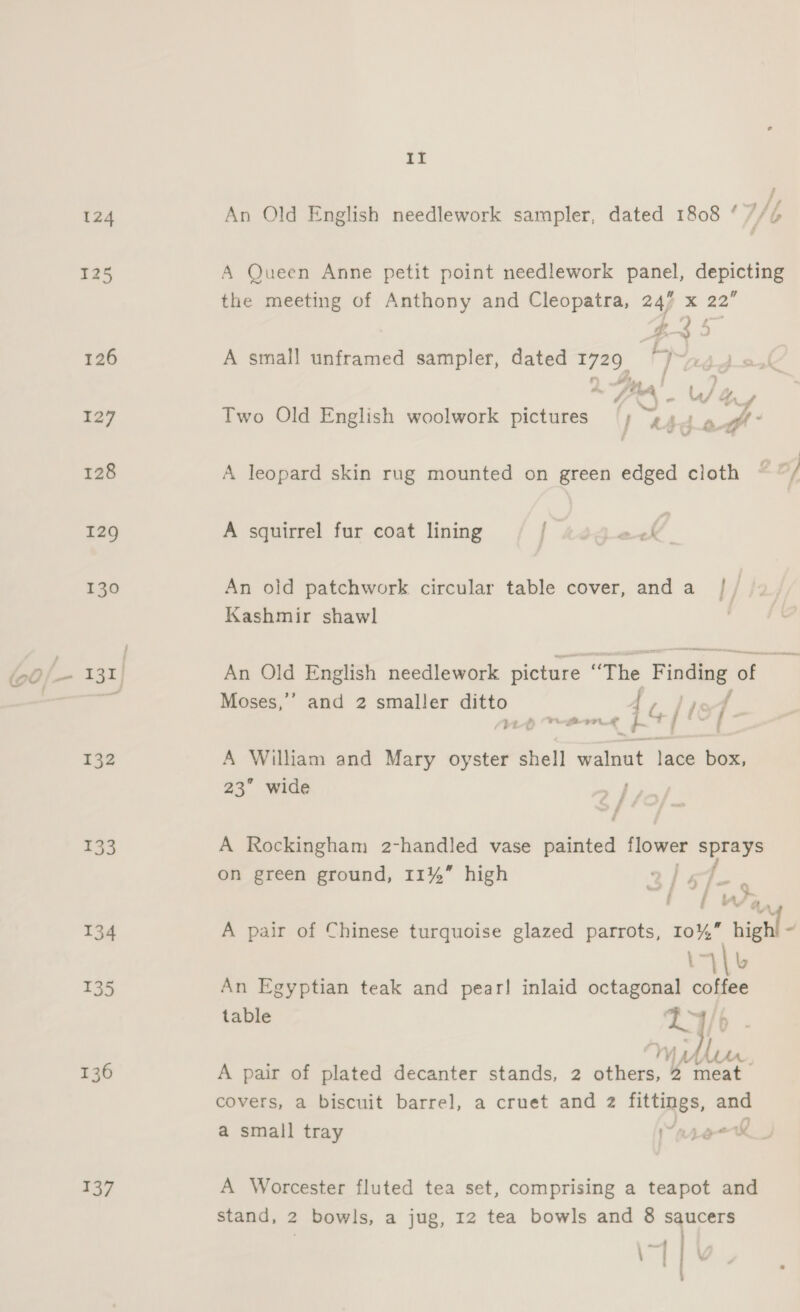 11
124 An Old English needlework sampler, dated 1808 17/6
125 A Queen Anne petit point needlework panel, depicting
the meeting of Anthony and Cleopatra, 24" x 22"
126 A small unframed sampler, dated 1729
127 Two Old English woolwork pictures
128 A leopard skin rug mounted on green edged cloth
129 A squirrel fur coat lining
130 An old patchwork circular table cover, and a
Kashmir shawl
60/- 131 An Old English needlework picture “The Finding of
Moses,” and 2 smaller ditto
no name
132 A William and Mary oyster shell walnut lace box,
23" wide 2/10/-
133 A Rockingham 2-handled vase painted flower sprays
on green ground, 11½" high
134 A pair of Chinese turquoise glazed parrots, 10½" high
17/6
135 An Egyptian teak and pearl inlaid octagonal coffee
table
136 A pair of plated decanter stands, 2 others, 2 meat
covers, a biscuit barrel, a cruet and 2 fittings, and
a small tray
137 A Worcester fluted tea set, comprising a teapot and
stand, 2 bowls, a jug, 12 tea bowls and 8 saucers
17/6